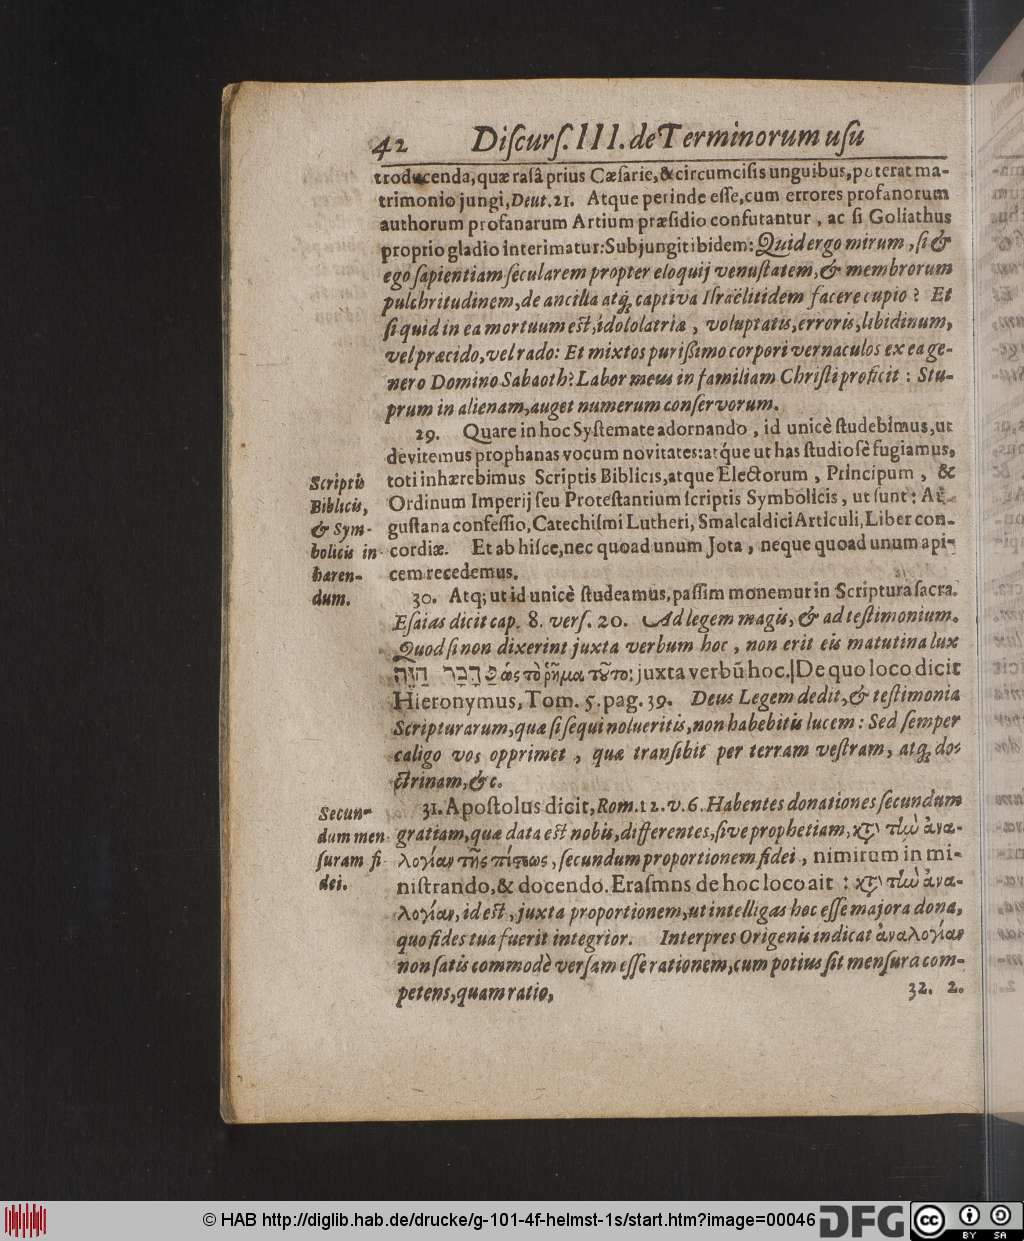 42 Diſcurſ. III. de Terminorum uſu
troducenda, quæ raſâ prius Cæſarie, & circumciſis unguibus, poterat ma-
trimonio jungi, Deut. 21. Atque perinde eſſe, cum errores profanorum
authorum profanarum Artium præſidio confutantur, ac ſi Goliathus
proprio gladio interimatur: Subjungit ibidem: Quid ergo mirum, ſi &
ego ſapientiam ſecularem propter eloquij venuſtatem, & membrorum
pulchritudinem, de ancilla atq; captiva Iſraëlitidem facere cupio? Et
ſi quid in ea mortuum eſt, idololatriæ, voluptatis, erroris, libidinum,
vel præcido, vel rado: Et mixtos purißimo corpori vernaculos ex ea ge-
nero Domino Sabaoth? Labor meus in familiam Chriſti proficit: Stu-
prum in alienam, auget numerum conſervorum.
29. Quare in hoc Syſtemate adornando, id unicè ſtudebimus, ut
devitemus prophanas vocum novitates: atq́ue ut has ſtudiosè fugiamus,
toti inhærebimus Scriptis Biblicis, atque Electorum, Principum, &
Ordinum Imperij ſeu Proteſtantium ſcriptis Symbolicis, ut ſunt: Au-
guſtana confeſſio, Catechiſmi Lutheri, Smalcaldici Articuli, Liber con-
cordiæ. Et ab hiſce, nec quoad unum Jota, neque quoad unum api-
cem recedemus.
Scriptis
Biblicis,
& Sym-
bolicis in-
hæren-
dum.
30. Atq; ut id unicè ſtudeamus, paſſim monemur in Scriptura ſacra.
Eſaias dicit cap. 8. verſ. 20. Ad legem magis, & ad teſtimonium.
Quod ſi non dixerint juxta verbum hoc, non erit eis matutina lux
כַּדָּבָר הַזֶּה ὡς τὸ ῥῆμα τοῦτο: juxta verbū hoc. | De quo loco dicit
Hieronymus, Tom. 5. pag. 39. Deus Legem dedit, & teſtimonia
Scripturarum, quæ ſi ſequi nolueritis, non habebitis lucem: Sed ſemper
caligo vos opprimet, quæ tranſibit per terram veſtram, atq; do-
ctrinam, &c.
31. Apoſtolus dicit, Rom. 12. v. 6. Habentes donationes ſecundum
gratiam, quæ data eſt nobis, differentes, ſive prophetiam, κτ̀ τὴν ἀνα-
λογίαν τῆς πίστεως, ſecundum proportionem fidei, nimirum in mi-
niſtrando, & docendo. Eraſmns de hoc loco ait: κτ̀ τὴν ἀνα-
λογίαν, id eſt, juxta proportionem, ut intelligas hoc eſſe majora dona,
quo fides tua fuerit integrior. Interpres Origenis indicat ἀναλογίαν
non ſatis commodè verſam eſſe rationem, cum potius ſit menſura com-
petens, quam ratio,
Secun-
dum men-
ſuram fi-
dei.
32. 2.
© HAB http://diglib.hab.de/drucke/g-101-4f-helmst-1s/start.htm?image=00046
DFG
cc
BY SA